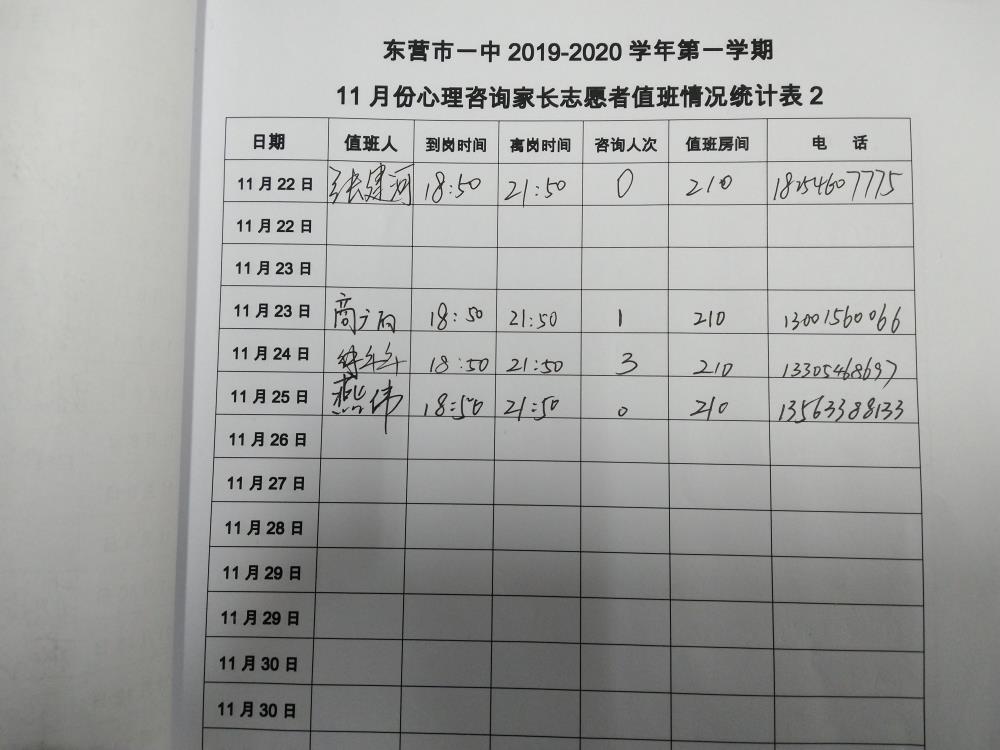 东营市一中 2019-2020 学年第一学期
11 月份心理咨询家长志愿者值班情况统计表 2
日期 值班人 到岗时间 离岗时间 咨询人次 值班房间 电 话
11 月 22 日 张建河 18:50 21:50 0 210 18254607775
11 月 22 日
11 月 23 日
11 月 23 日 商 18:50 21:50 1 210 13001560066
11 月 24 日 18:50 21:50 3 210 13305468697
11 月 25 日 燕伟 18:50 21:50 0 210 13563388133
11 月 26 日
11 月 27 日
11 月 28 日
11 月 29 日
11 月 29 日
11 月 30 日
11 月 30 日